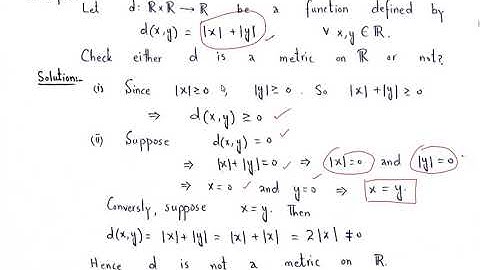 Let d: ℝ×ℝ → ℝ be a function defined by
d(x,y) = |x| + |y| ∀ x,y ∈ ℝ.
Check either d is a metric on ℝ or not?
Solution:-
(i) Since |x| ≥ 0 , |y| ≥ 0 . So |x| + |y| ≥ 0
⇒ d(x,y) ≥ 0 ✓
(ii) Suppose d(x,y) = 0 ✓
⇒ |x| + |y| = 0 ✓ ⇒ |x| = 0 and |y| = 0
⇒ x = 0 ✓ and y = 0 ✓ ⇒ x = y.
Conversly, suppose x = y. Then
d(x,y) = |x| + |y| = |x| + |x| = 2|x| ≠ 0
Hence d is not a metric on ℝ.